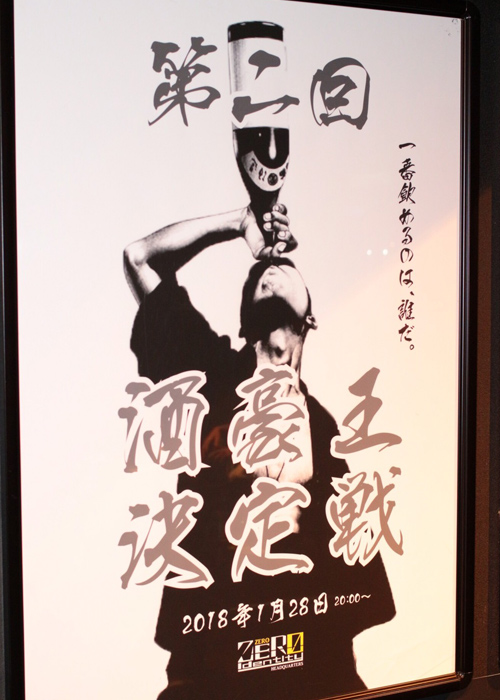 第二回
一番飲めるのは、誰だ。
酒豪王
決定戦
2018年1月28日 20:00～
ZERO
ZERO
identity
HEADQUARTERS